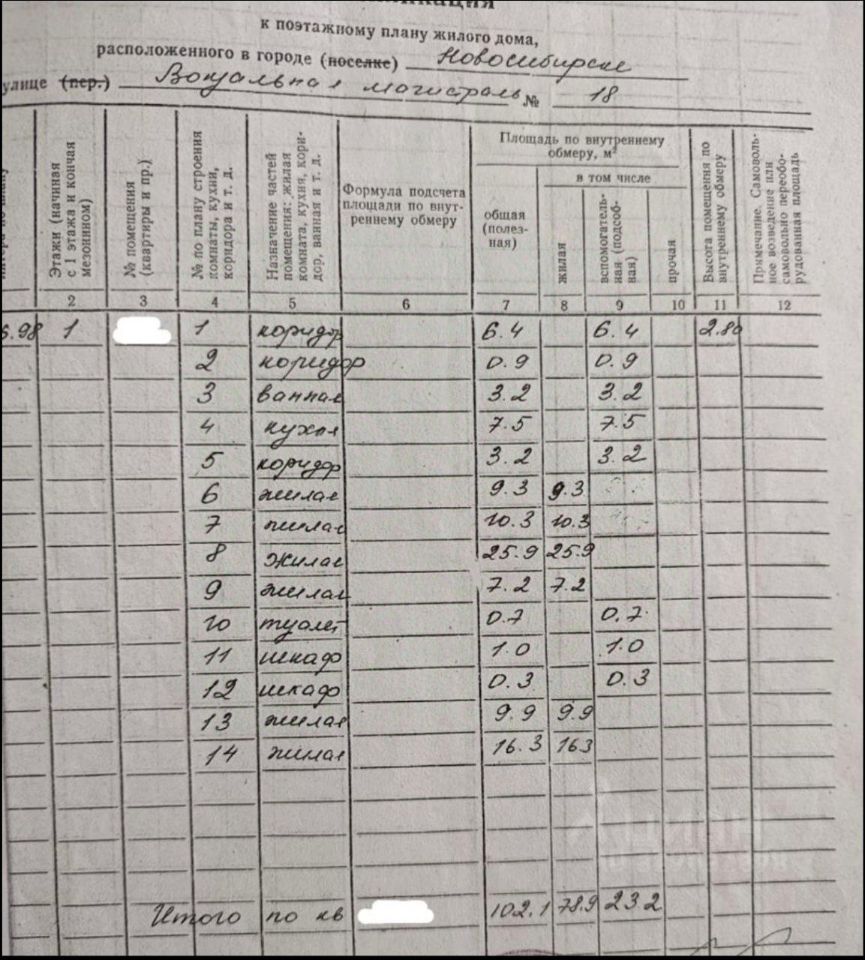 к поэтажному плану жилого дома,
расположенного в городе (поселке) Новосибирске
улице (пер.) Вокзальная магистраль № 18
Этажи (начиная с 1 этажа и кончая мезонином)
№ помещения (квартиры и пр.)
№ по плану строения комнаты, кухни, коридора и т. д.
Назначение частей помещения: жилая комната, кухня, коридор, ванная и т. д.
Формула подсчета площади по внутреннему обмеру
Площадь по внутреннему обмеру, м²
общая (полезная)
в том числе
жилая
вспомогательная (подсобная)
прочая
Высота помещения по внутреннему обмеру
Примечание. Самовольное возведение или самовольно переоборудованная площадь
2 3 4 5 6 7 8 9 10 11 12
6.98 1 1 коридор 6.4 6.4 2.80
2 коридор 0.9 0.9
3 ванная 3.2 3.2
4 кухня 7.5 7.5
5 коридор 3.2 3.2
6 жилая 9.3 9.3
7 жилая 10.3 10.3
8 жилая 25.9 25.9
9 жилая 7.2 7.2
10 туалет 0.7 0.7
11 шкаф 1.0 1.0
12 шкаф 0.3 0.3
13 жилая 9.9 9.9
14 жилая 16.3 16.3
Итого по кв 102.1 78.9 23.2